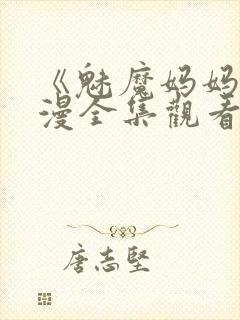 《魅魔妈妈
漫全集觀看
唐志堅